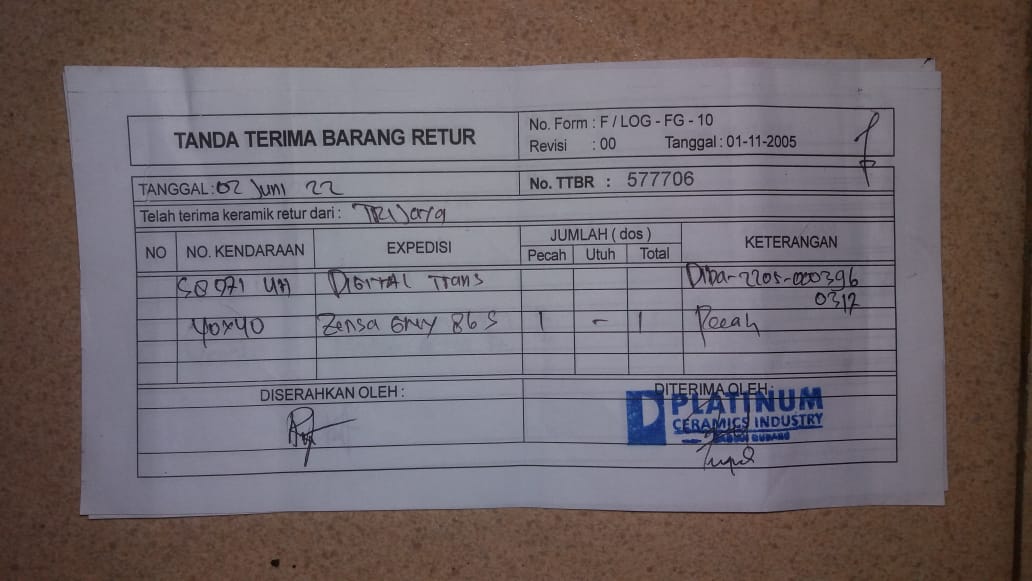 TANDA TERIMA BARANG RETUR
No. Form : F / LOG - FG - 10
Revisi : 00 Tanggal : 01-11-2005
TANGGAL : 02 Juni 22 No. TTBR : 577706
Telah terima keramik retur dari : TRIJaya
NO NO. KENDARAAN EXPEDISI JUMLAH ( dos ) KETERANGAN
Pecah Utuh Total
DIGITAL Trans Diba-2205-000396
0312
40x40 Zensa Grey 86 S 1 - 1 Pecah
DISERAHKAN OLEH : DITERIMA OLEH :
PLATINUM
CERAMICS INDUSTRY
GUDANG